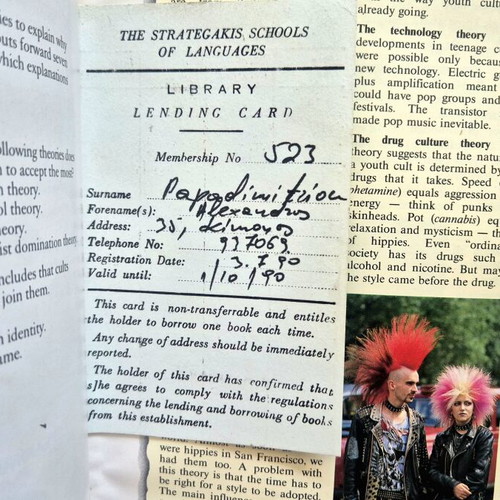 ies to explain why
outs forward seven
which explanations
ollowing theories does
n to accept the most?
n theory.
ol theory.
heory.
ist domination theory
ncludes that cults
join them.
n identity.
ame.
THE STRATEGAKIS SCHOOLS
OF LANGUAGES
LIBRARY
LENDING CARD
Membership No 523
Surname Papadimitriou
Forename(s): Alexandros
Address: 35,
Telephone No: 937069
Registration Date: 3.7.90
Valid until: 1/10/90
This card is non-transferrable and entitles
the holder to borrow one book each time.
Any change of address should be immediately
reported.
The holder of this card has confirmed that
s]he agrees to comply with the regulations
concerning the lending and borrowing of books
from this establishment.
the way youth cult
already going.
The technology theory
developments in teenage c
were possible only becaus
new technology. Electric g
plus amplification meant
could have pop groups and
festivals. The transistor
made pop music inevitable.
The drug culture theory
theory suggests that the natu
a youth cult is determined by
drugs that it takes. Speed
phetamine) equals aggression
energy — think of punks
skinheads. Pot (cannabis) equ
relaxation and mysticism — th
of hippies. Even "ordina
society has its drugs such
alcohol and nicotine. But ma
the style came before the drug.
were hippies in San Francisco, we
had them too. A problem with
this theory is that the time has to
be right for a style to be adopted
The main influen